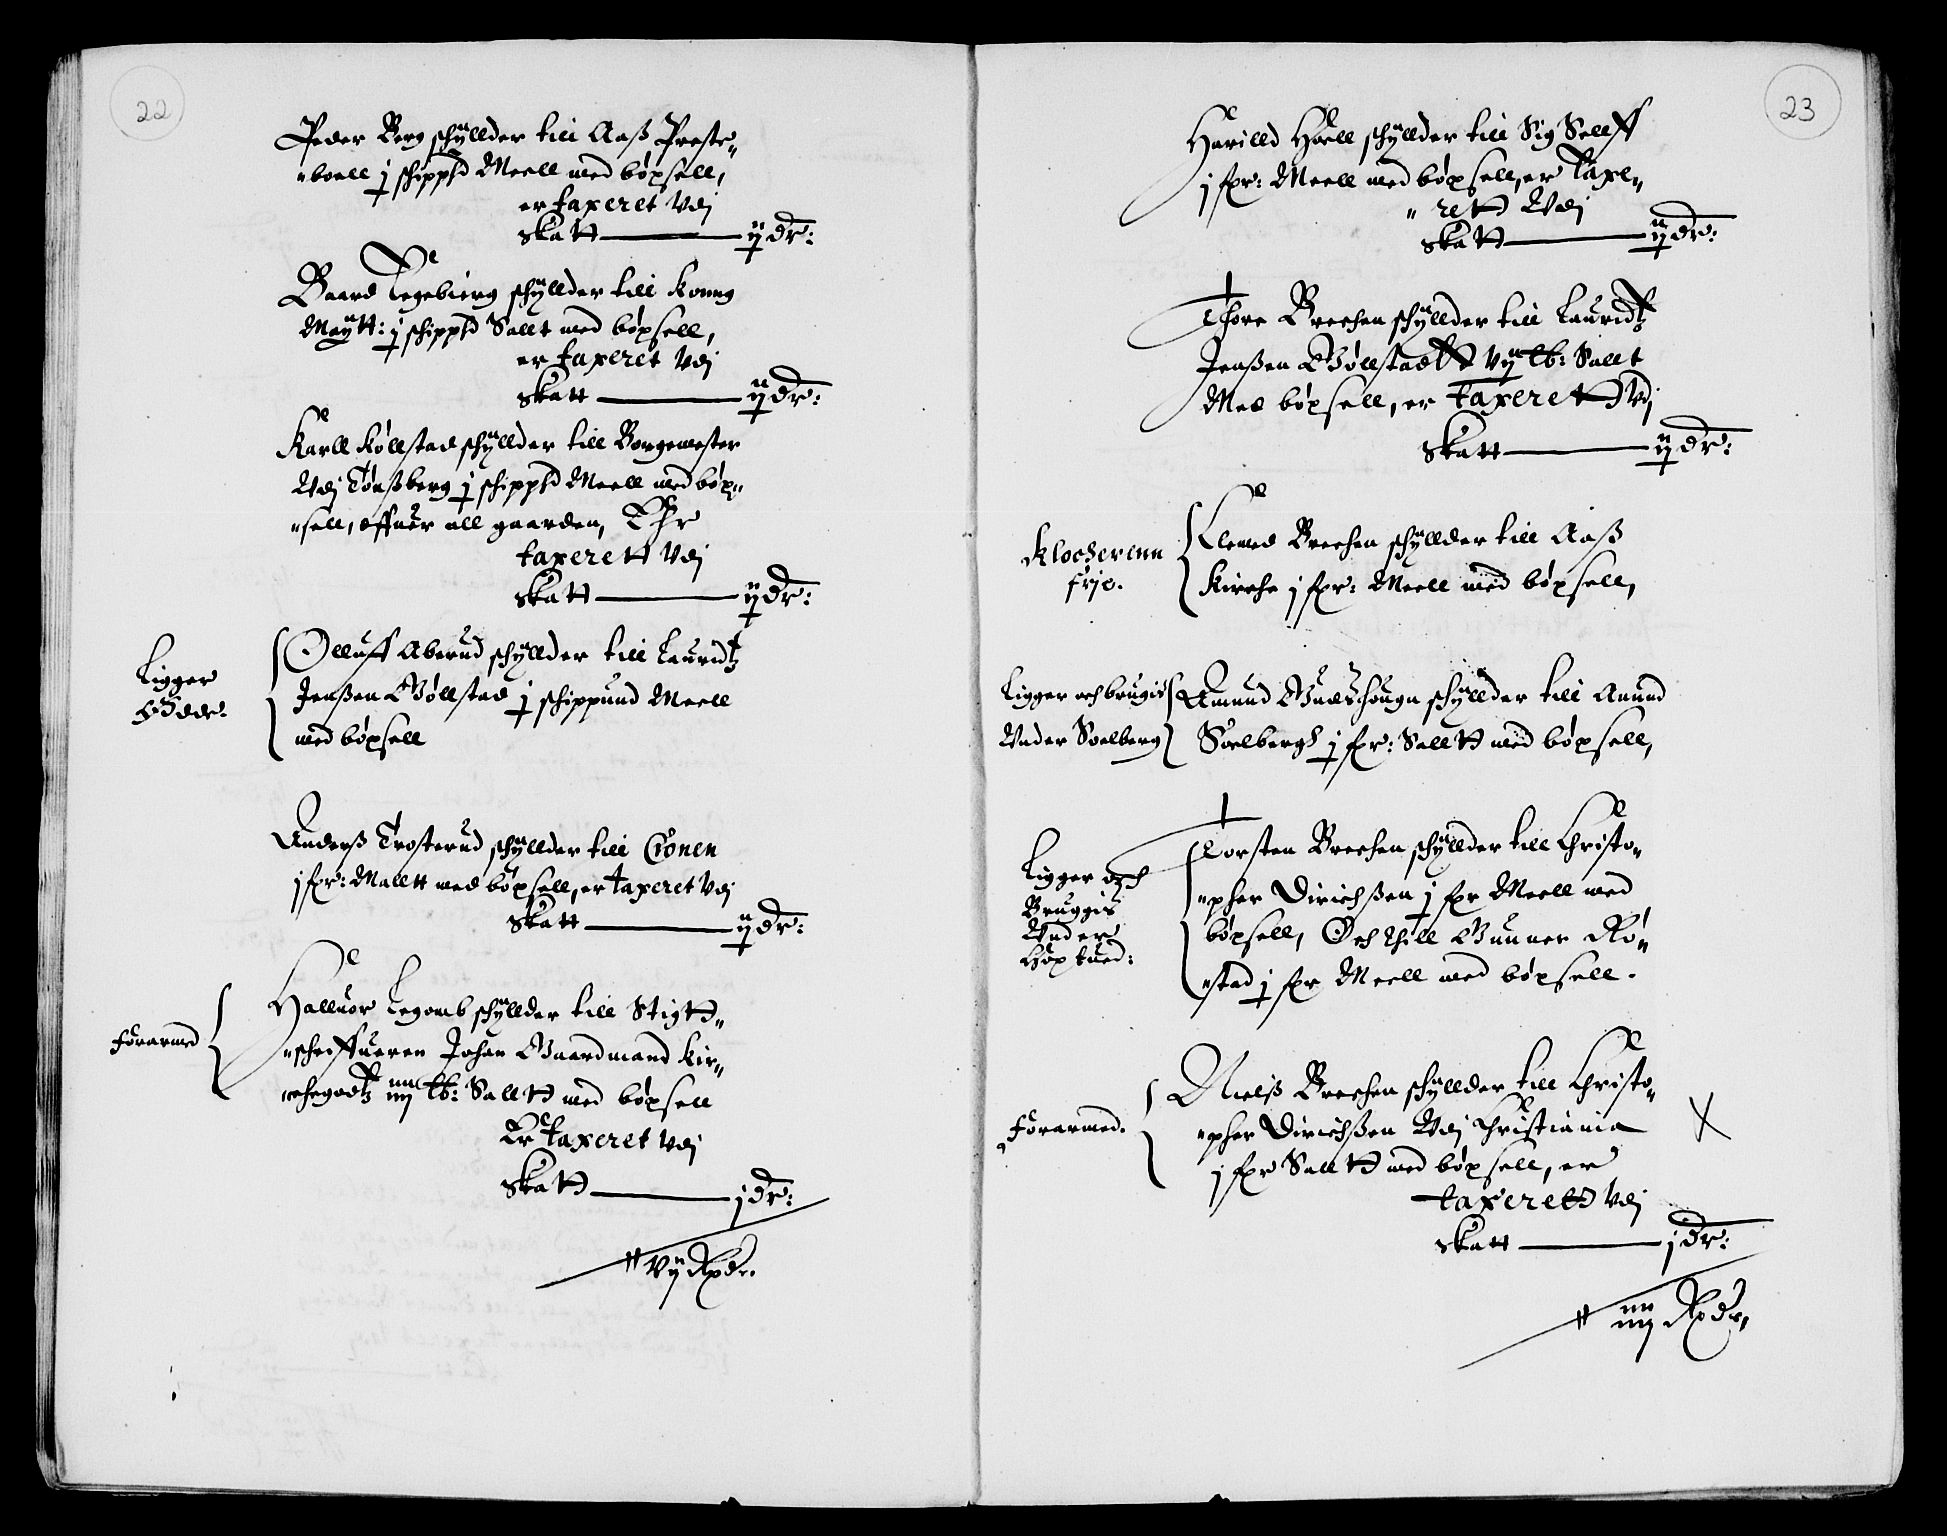 22
Peder Berg schyllder till Aaß Preste„
„boell j schippd Meell med bøxsell,
er taxeret Vdj
Skatt ij dr:
Baard Tegebierg schyllder till Konng
Maÿtt: j schippd Sallt med bøxsell,
er taxeret Vdj
Skatt ij dr:
Karll Kollstad schyllder till Borgemester
Vdj Tønßberg j schippd Meell med bøx„
„sell, offuer all gaarden, Ehr
taxerett Vdj
Skatt ij dr:
Ligger
Øde.
Olluff Aberud schyllder till Lauridtz
Jenßen Gøllstad j schippund Meell
med bøxsell
Anderß Trosterud schyllder till Cronen
j fxr: Malltt med bøxsell, er taxeret Vdj
Skatt ij dr:
Forarmed
Halluor Legomb schyllder till Stigtt„
„schriffueren Johan Gaardmand Kir„
„chegodtz iiij lb: Salltt med bøxsell
Er taxeret Vdj
Skatt j dr:
vij Rxdr.
23
Harilld Hoell schyllder till Sig Sellff
j fxr: Meell med bøxsell, er Taxe„
„rett Vdj
Skatt ij dr:
Thore Brechen schyllder till Lauridtz
Jenßen Gøllstadtt Vij lb: Sallt
Med bøxsell, er taxerett Vdj
Skatt ij dr:
Klockerenn
frje.
Klemed Brechen schyllder till Aaß
Kirche j fxr: Meell med bøxsell,
Ligger och brugis
Vnder Soelberg
Amund Gudschougn schyllder till Anund
Soelbergh j fxr: Salltt med bøxsell,
Ligger och
Bruggis
Vnder
Høxtued:
Torsten Brechen schyllder till Christo„
„pher Dirichßen j fxr Meell med
bøxsell, Och thill Gunner Rø„
„stad j fxr Meell med bøxsell.
Forarmed.
Nielß Brechen schyllder till Christo„
„pher Dirichßen Vdj Christiania
j fxr Salltt med bøxsell, er
taxerett Vdj
Skatt j dr:
iiij Rxdr,